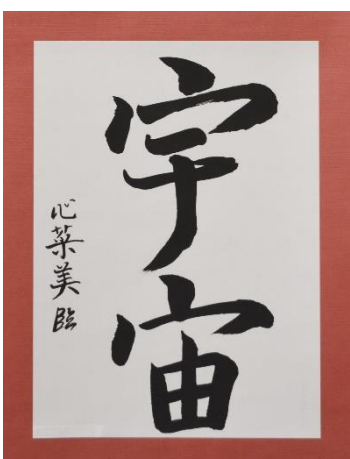 宇宙
心葉美臨